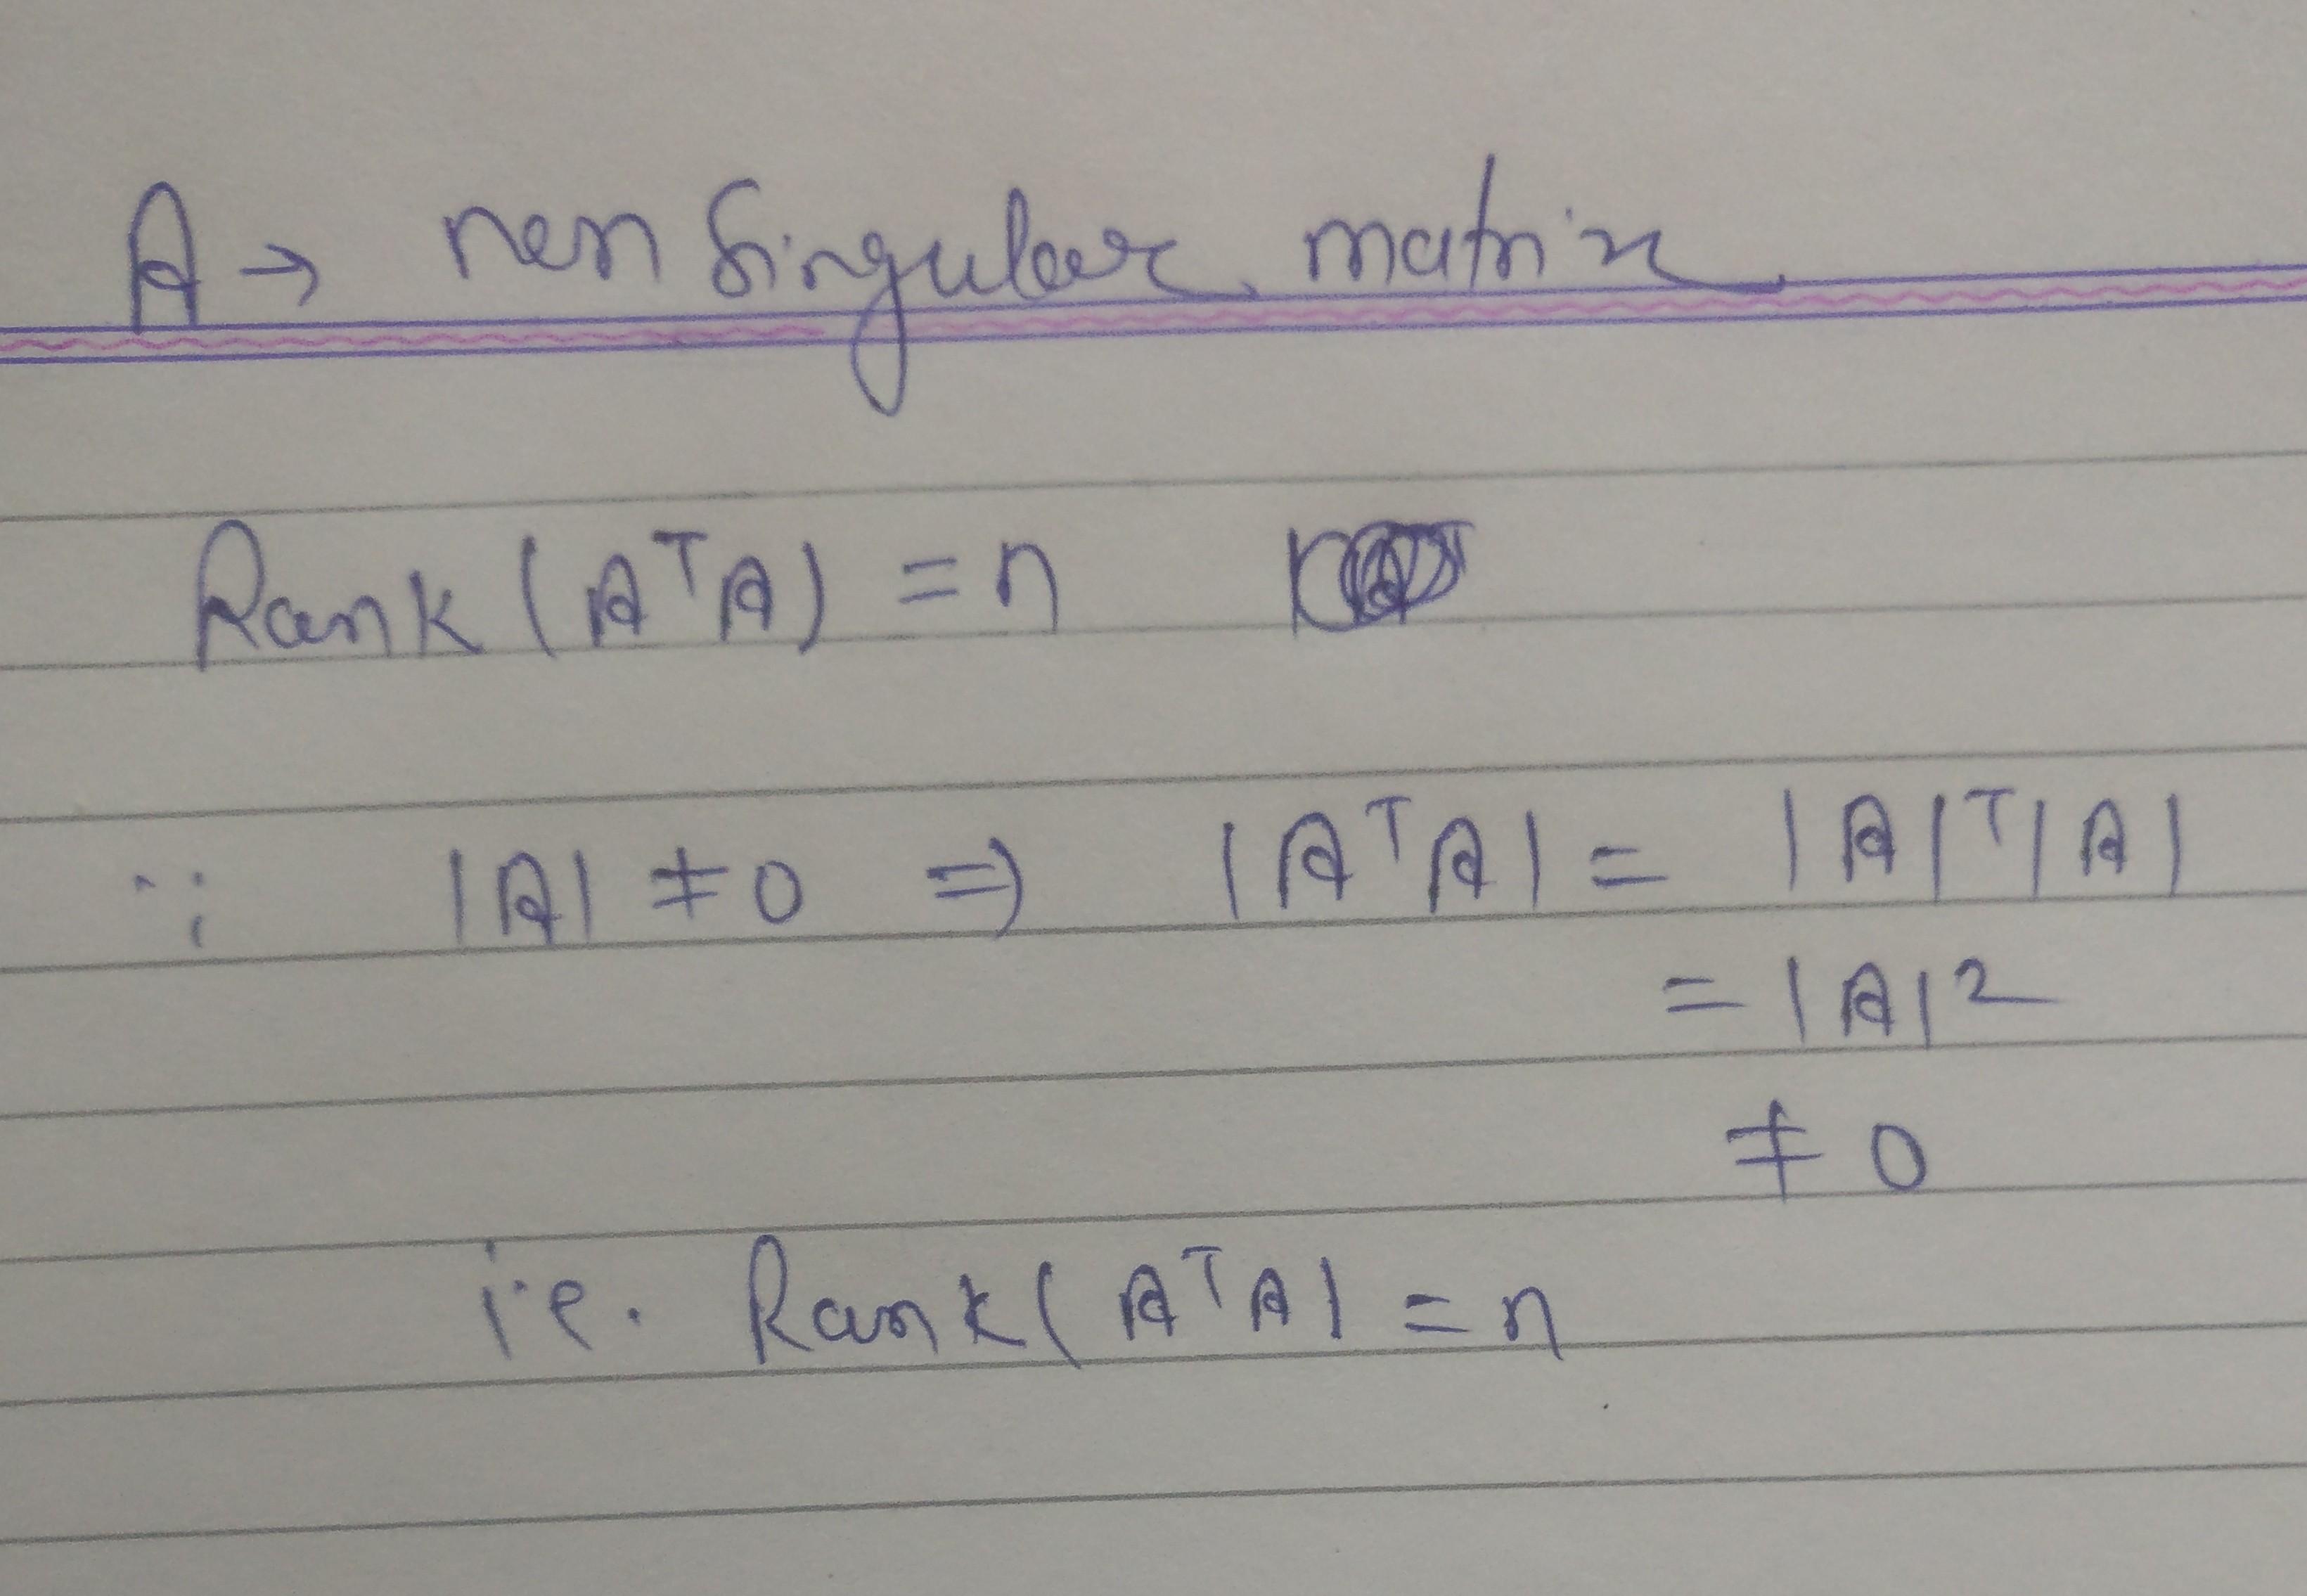 A → non singular matrix
Rank (AᵀA) = n
∵ |A| ≠ 0 ⇒ |AᵀA| = |A|ᵀ|A|
= |A|²
≠ 0
i.e. Rank (AᵀA) = n